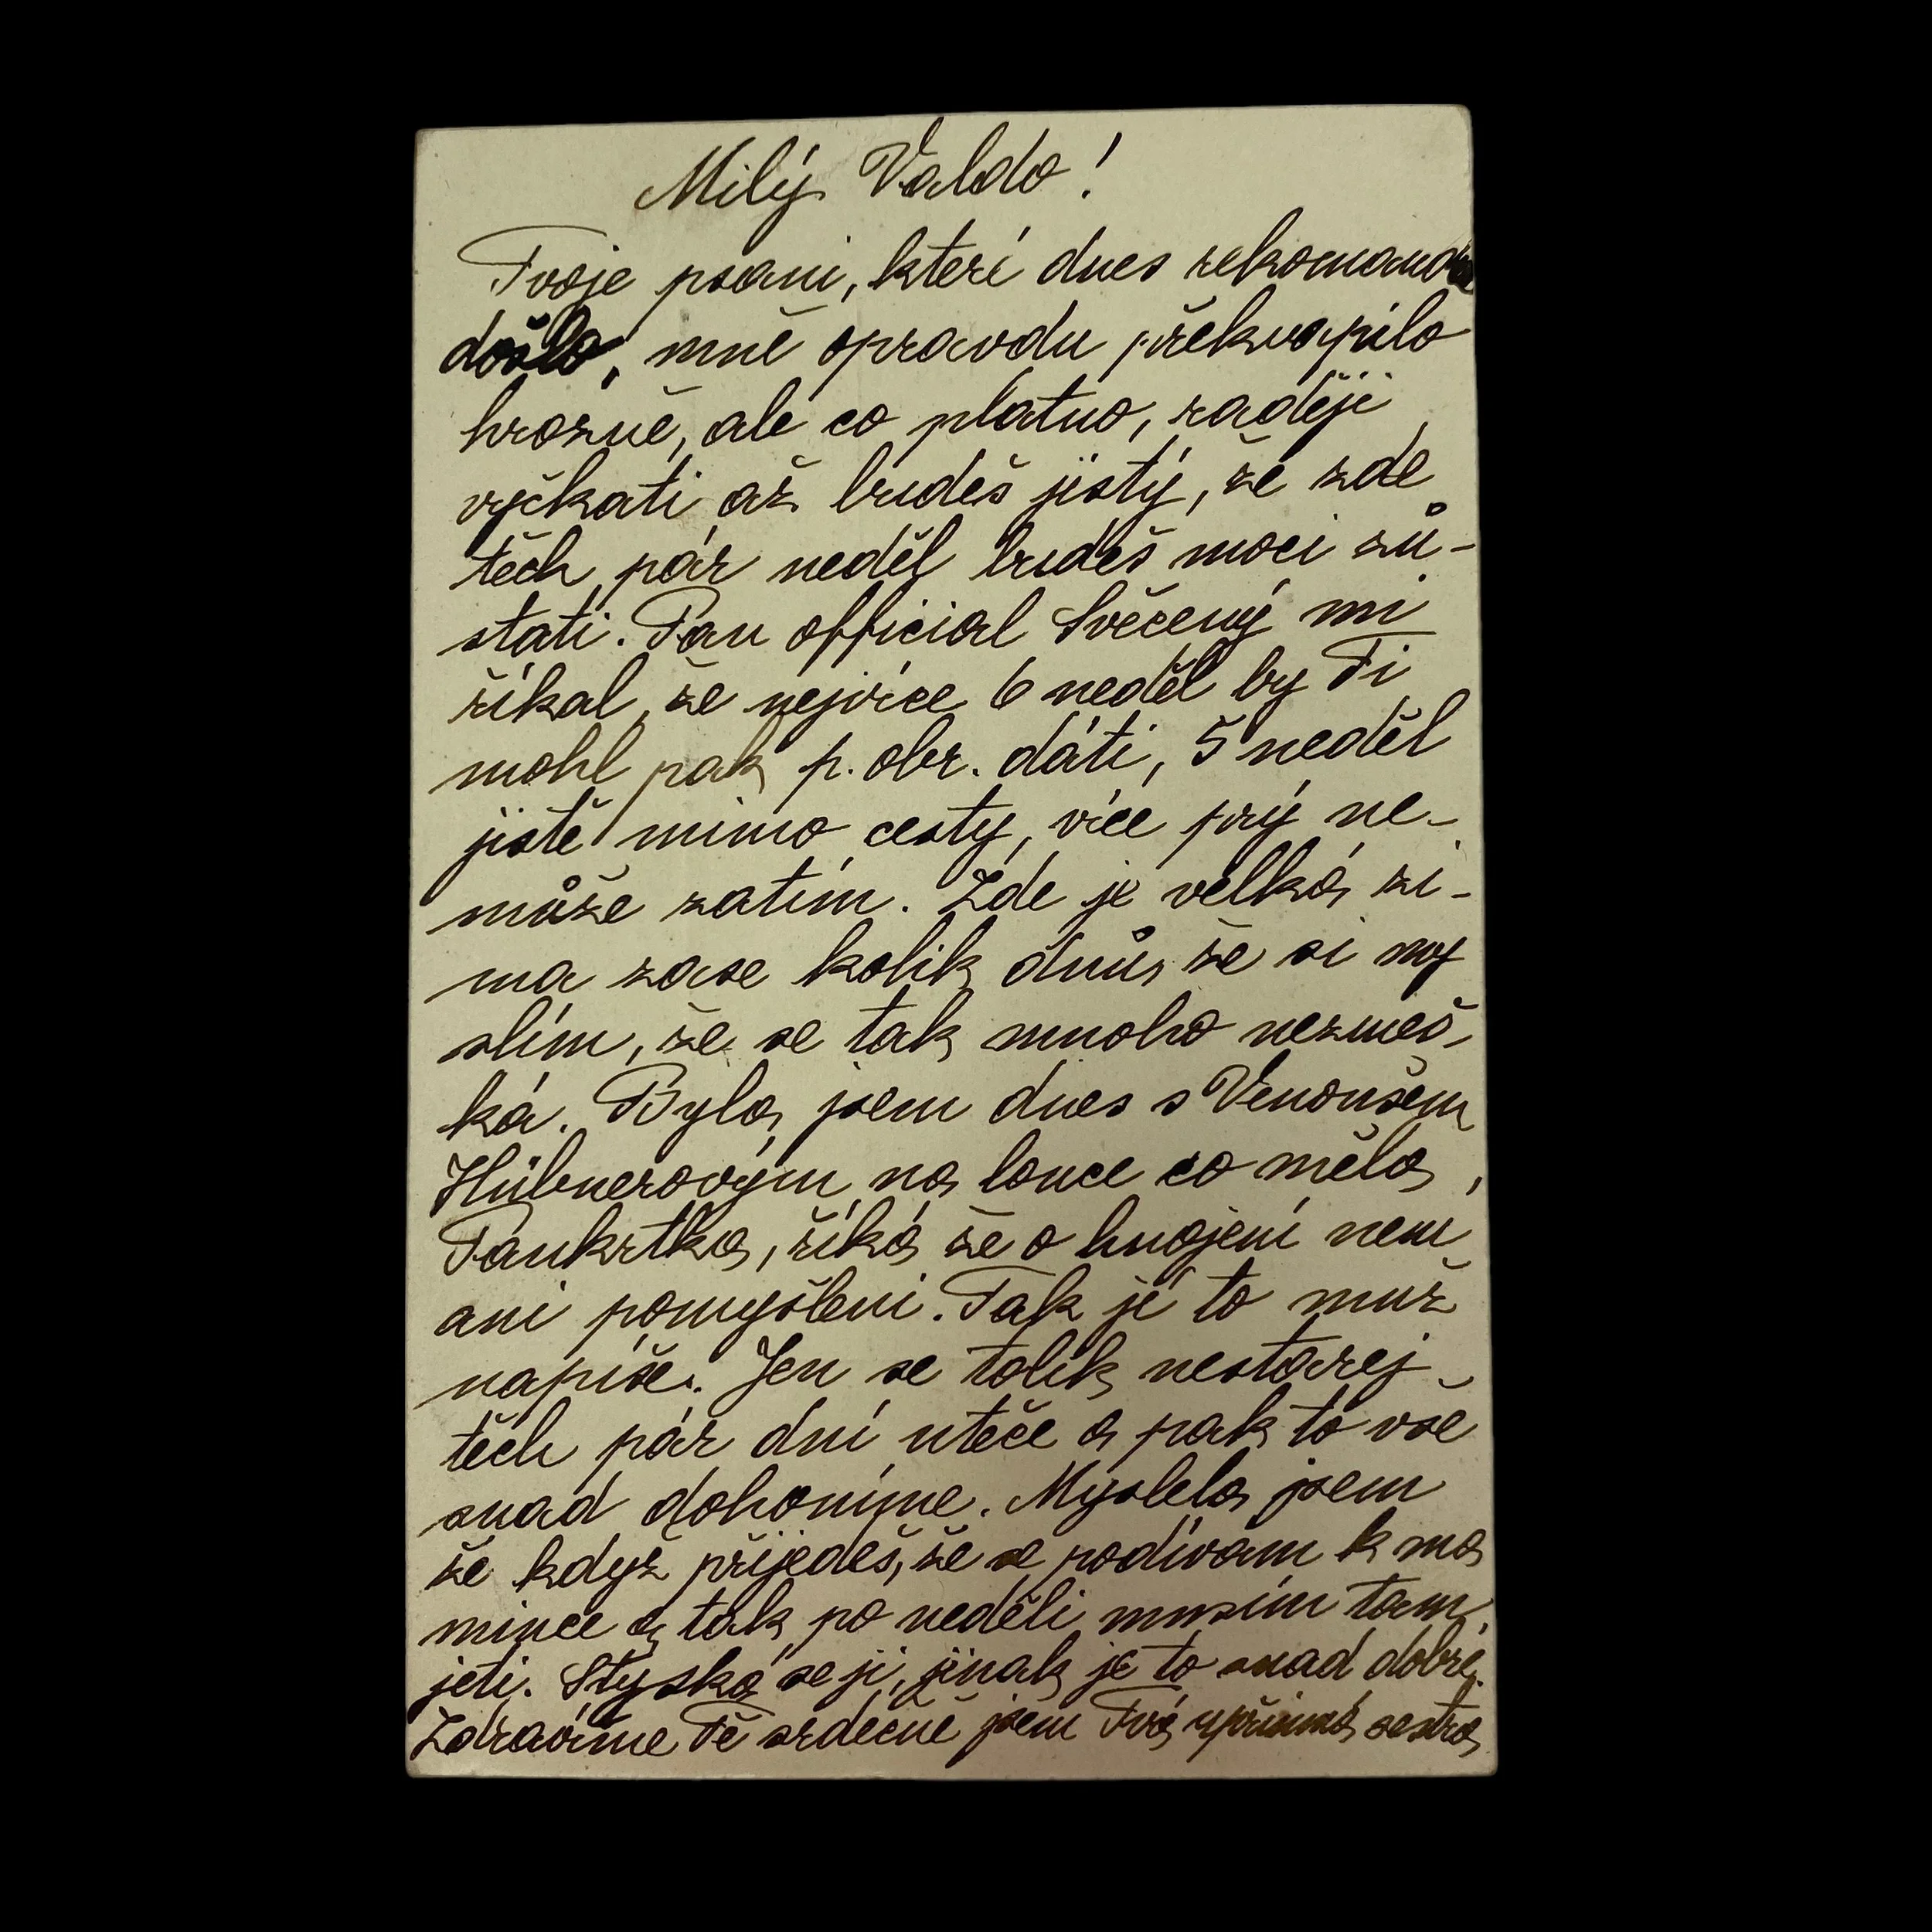 Milý Valdo!
Tvoje psaní, kteri dnes rekomando
došlo, mně opravdu překvapilo
hrozně, ale co platno, raději
vyčkati až budeš jistý, že zde
těch pár neděl budeš moci zů-
stati. Pan official Svěcený mi
říkal, že nejvíce 6 neděl by Ti
mohl pak p. obr. dáti, 5 neděl
jistě mimo cesty, více prý ne-
může zatím. Zde je velká zi-
ma zase kolik dnů, že si my
slím, že se tak mnoho nezmeš-
ká. Byla jsem dnes s Venoušem
Hübnerovým na louce co měla
Pankrtka, říká že o hnojení nem
ani pomyšlení. Tak jé to muž
napíše. Jen se tolik nestarej
těch pár dní uteče a pak to vše
snad dohoníme. Myslela jsem
že když přijedeš, že se podívám k ma
mince a tak po neděli musím tam
jeti. Stýská se jí, jinak je to snad dobré.
Zdravíme Tě srdečně jsem Tvá upřímná sestra